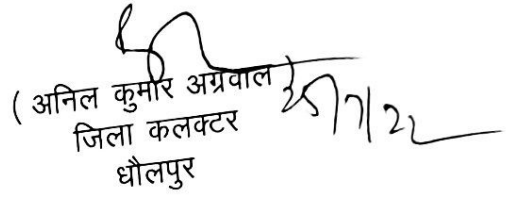 ( अनिल कुमार अग्रवाल )
जिला कलक्टर
धौलपुर
25/7/22